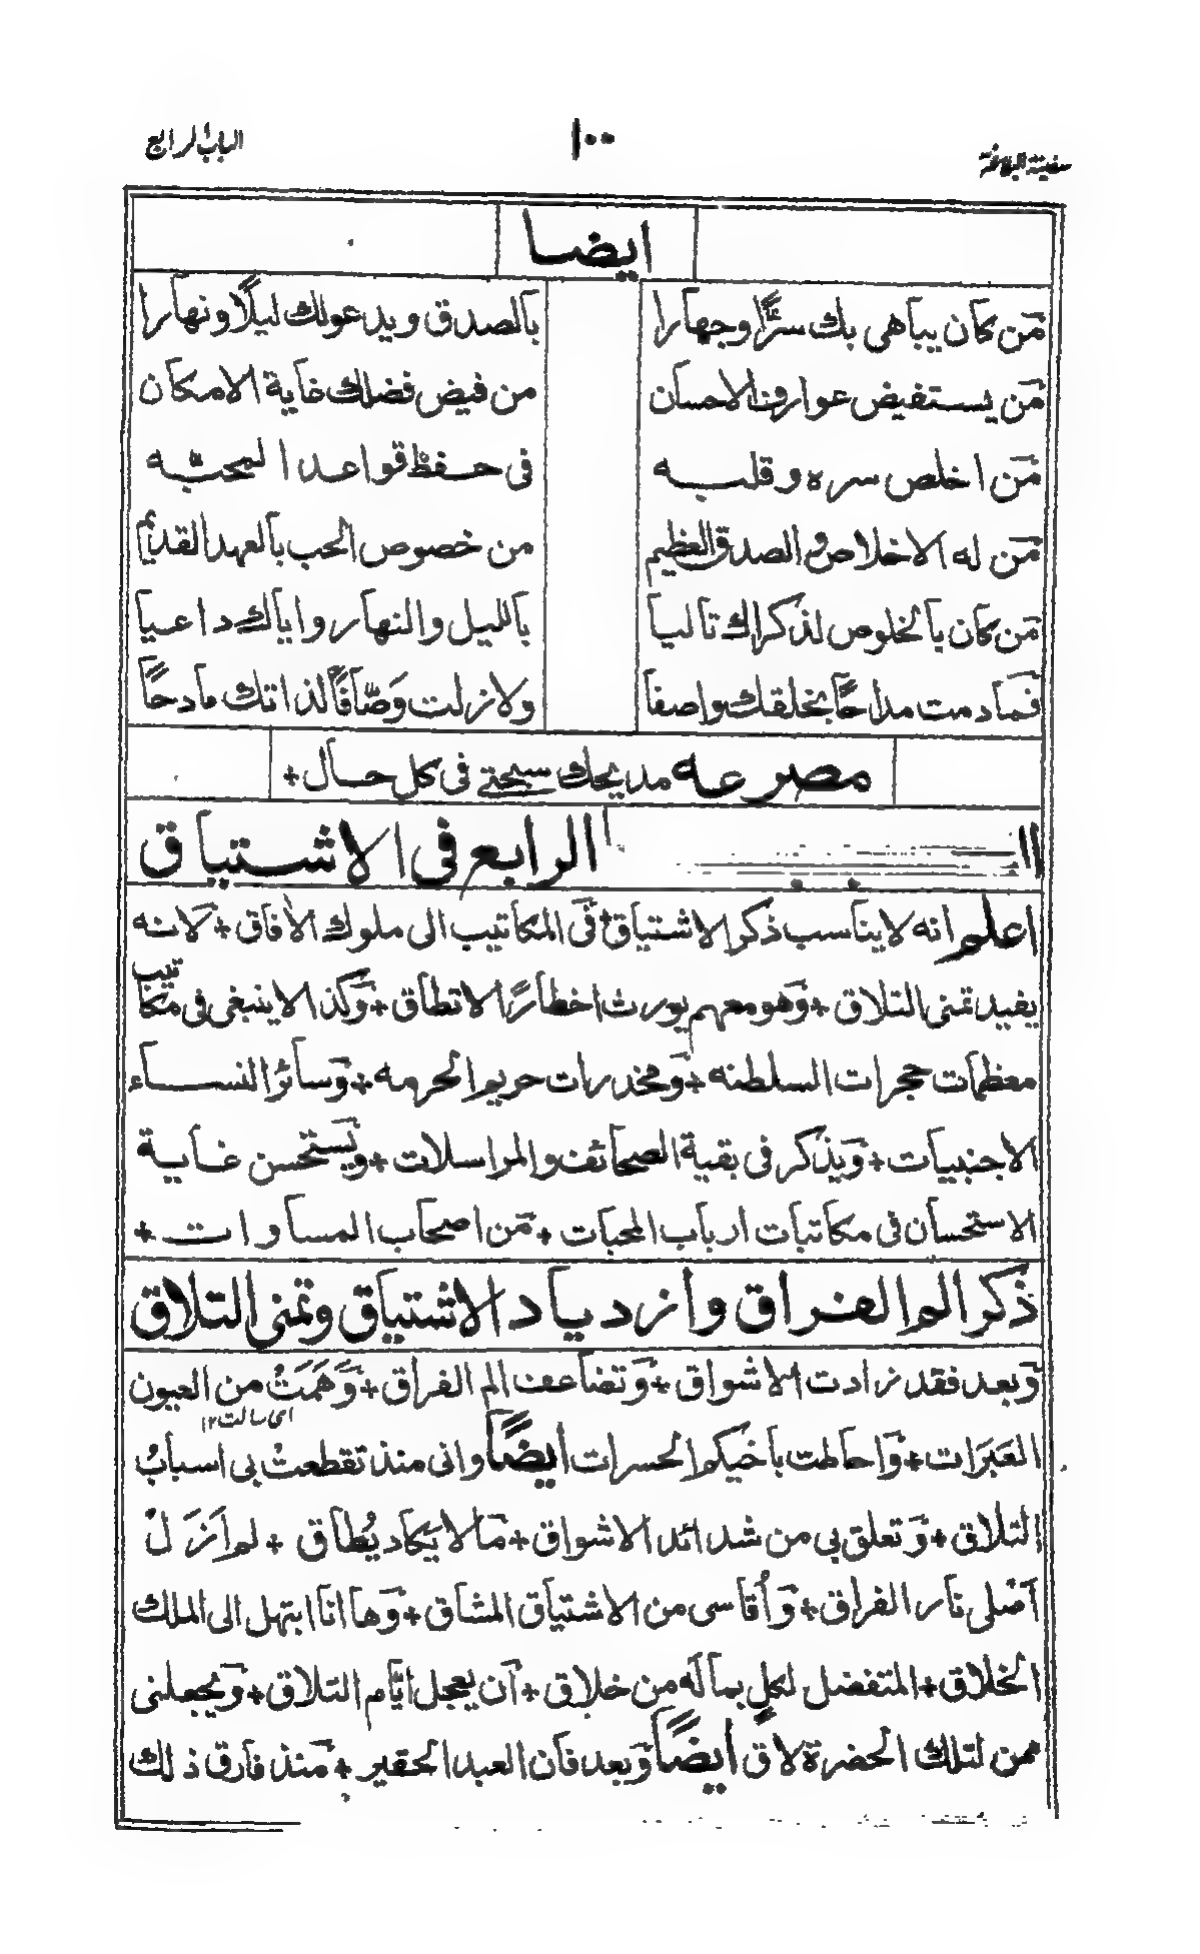 سفينة البلاغة
١٠٠
الباب الرابع
ايضا
مَن كان يباهى بك سرًّا وجهارا بالصدق ويدعو لك ليلًا ونهارا
مَن يستفيض عوارف الاحسان من فيض فضلك غاية الامكان
مَن اخلص سره وقلبه فى حفظ قواعد المحبّه
مَن له الاخلاص والصدق العظيم من خصوص الحب بالعهد القديم
مَن كان بالخلوص لذكراك تاليا بالليل والنهار واياك داعيا
فما دمت مداحًا بخلقك واصفا ولا زلت وَصّافًا لذاتك مادحًا
مصرعه مديحك سبحتى فى كل حال +
الرابع فى الاشتياق
اعلم انه لا يناسب ذكر الاشتياق + فى المكاتيب الى ملوك الآفاق + لانه
يفيد تمنى التلاق + وَهو معهم يورث اخطارًا لا تطاق + وَكذا لا ينبغى فى مكاتيب
معظمات حجرات السلطنه + وَمخدرات حريم الحرمه + وَسائر النساء
الاجنبيات + وَيذكر فى بقية الصحائف والمراسلات + وَيستحسن غاية
الاستحسان فى مكاتبات ارباب المحبات + مَن اصحاب المساوات +
ذكر الم الفراق وازدياد الاشتياق وتمنى التلاق
وَبعد فقد زادت الاشواق + وَتضاعف الم الفراق + وَهَمَتْ من العيون
اى سالت ١٢
العَبَرات + وَاحاطت باخيكم الحسرات ايضًا وانى منذ تقطعتْ بى اسبابُ
التلاق + وَتعلق بى من شدائد الاشواق + مَا لا يكاد يُطاق + لم اَزَلْ
اَصْلى نار الفراق + وَاُقاسى من الاشتياق المشاق + وَها انا ابتهل الى الملك
الخلاق + المتفضل لكلٍ بما لَه من خلاق + اَن يعجل ايّام التلاق + وَيجعلنى
ممن لتلك الحضرة لاقٍ ايضًا وَبعد فان العبد الحقير + مَنذ فارق ذلك